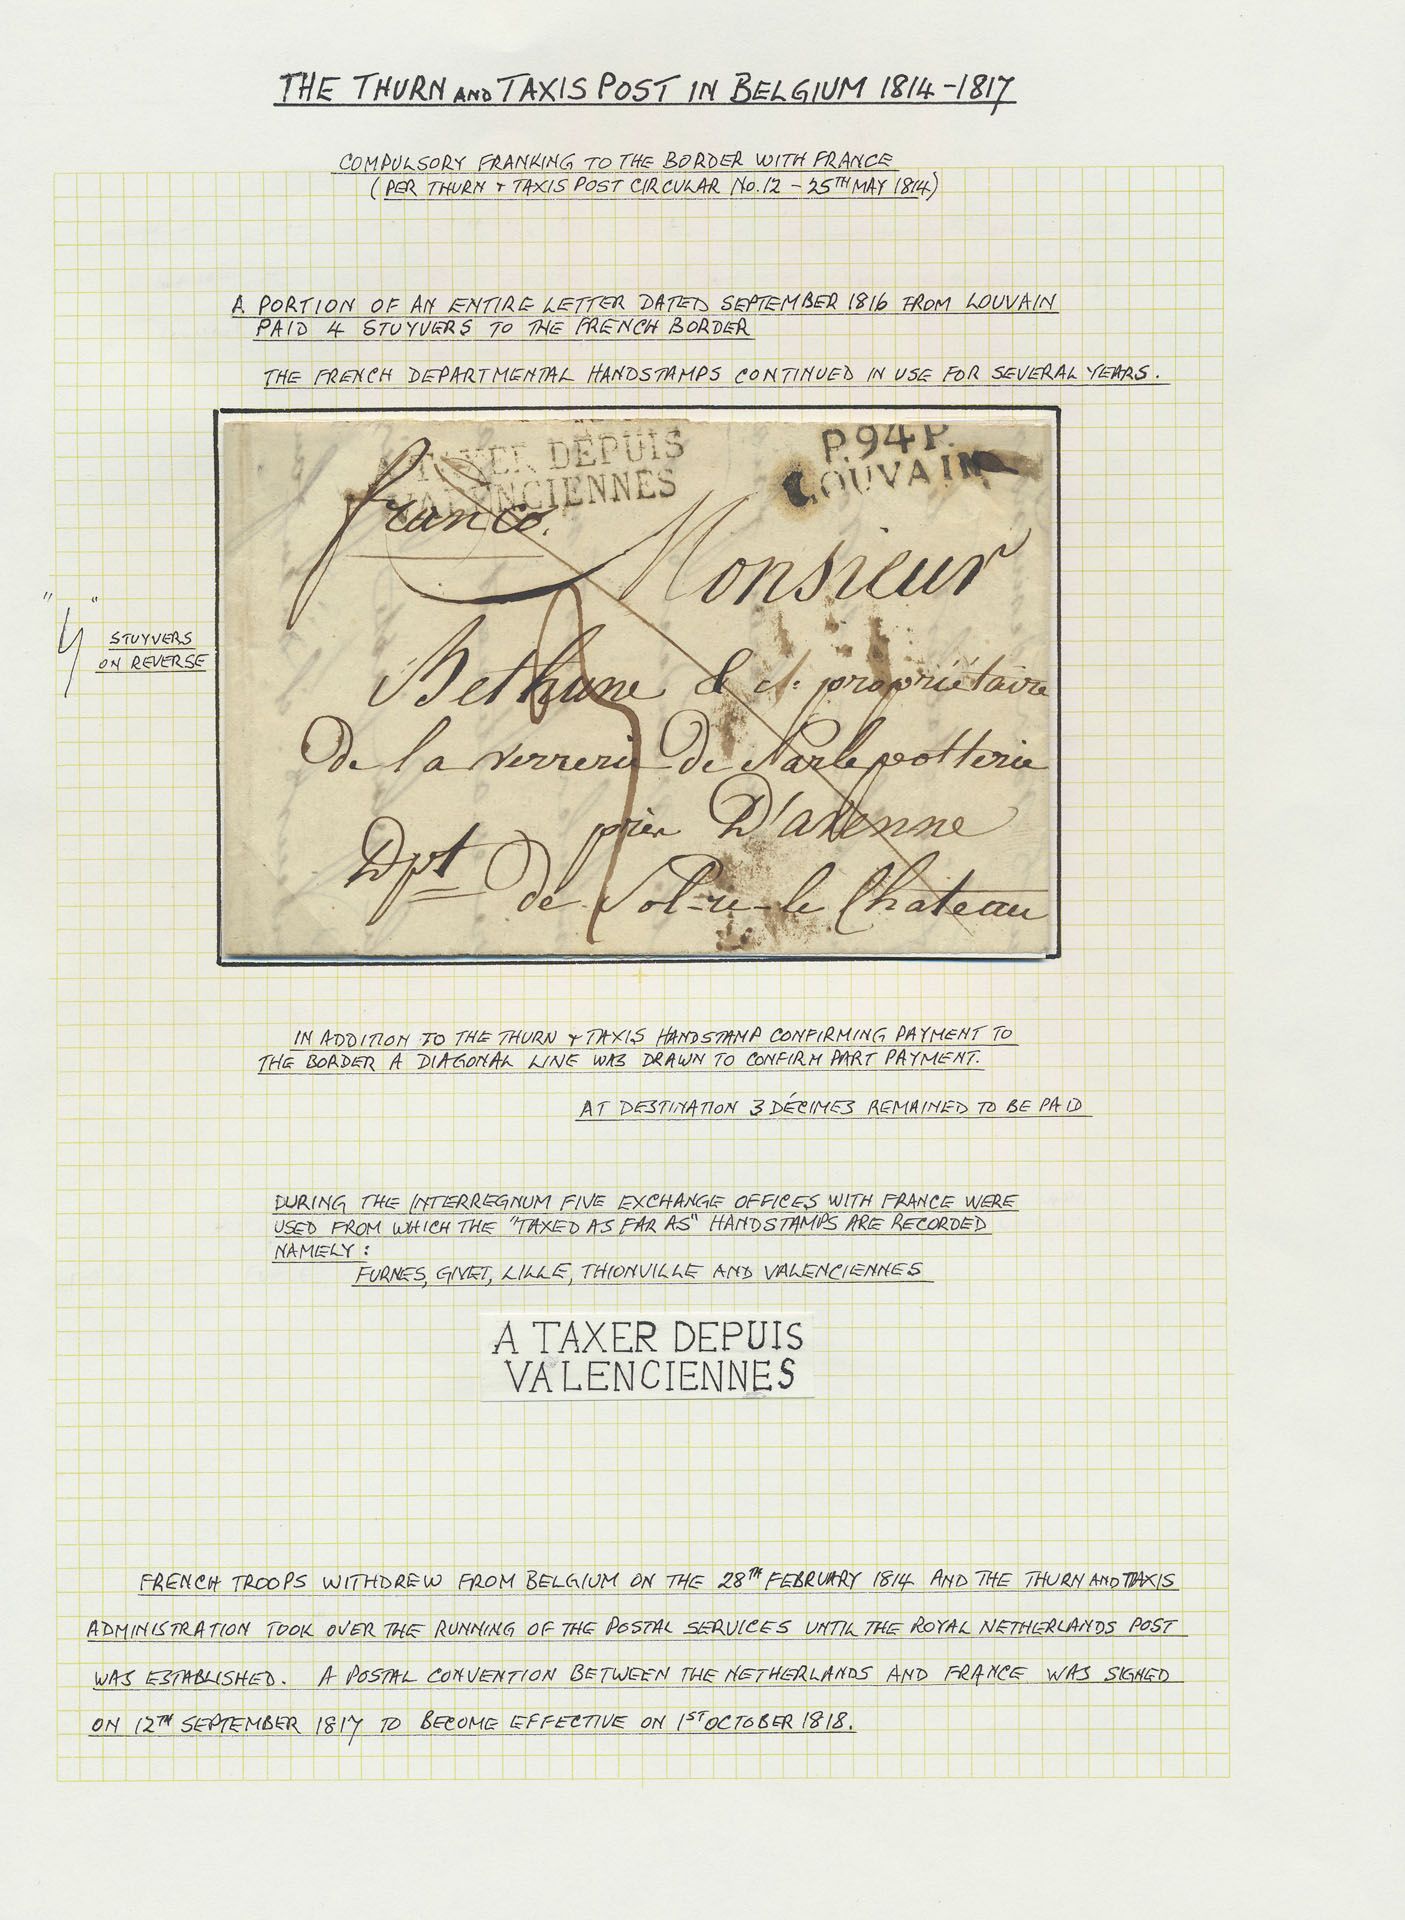 THE THURN AND TAXIS POST IN BELGIUM 1814-1817
COMPULSORY FRANKING TO THE BORDER WITH FRANCE
(PER THURN & TAXIS POST CIRCULAR NO.12 - 25TH MAY 1814)
A PORTION OF AN ENTIRE LETTER DATED SEPTEMBER 1816 FROM LOUVAIN
PAID 4 STUYVERS TO THE FRENCH BORDER
THE FRENCH DEPARTMENTAL HANDSTAMPS CONTINUED IN USE FOR SEVERAL YEARS.
A TAXER DEPUIS
VALENCIENNES
P.94P.
LOUVAIN
franco.
Monsieur
"4" STUYVERS
ON REVERSE
Bethune & propriétaire
De la verrerie de
près D'avenne
Dpt de Sol-re-le Chateau
IN ADDITION TO THE THURN & TAXIS HANDSTAMP CONFIRMING PAYMENT TO
THE BORDER A DIAGONAL LINE WAS DRAWN TO CONFIRM PART PAYMENT.
AT DESTINATION 3 DÉCIMES REMAINED TO BE PAID
DURING THE INTERREGNUM FIVE EXCHANGE OFFICES WITH FRANCE WERE
USED FROM WHICH THE "TAXED AS FAR AS" HANDSTAMPS ARE RECORDED
NAMELY:
FURNES, GIVET, LILLE, THIONVILLE AND VALENCIENNES
A TAXER DEPUIS
VALENCIENNES
FRENCH TROOPS WITHDREW FROM BELGIUM ON THE 28TH FEBRUARY 1814 AND THE THURN AND TAXIS
ADMINISTRATION TOOK OVER THE RUNNING OF THE POSTAL SERVICES UNTIL THE ROYAL NETHERLANDS POST
WAS ESTABLISHED. A POSTAL CONVENTION BETWEEN THE NETHERLANDS AND FRANCE WAS SIGNED
ON 12TH SEPTEMBER 1817 TO BECOME EFFECTIVE ON 1ST OCTOBER 1818.